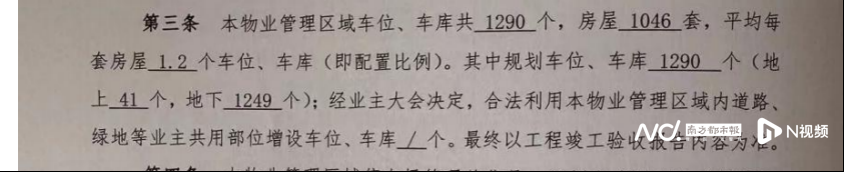 第三条 本物业管理区域车位、车库共 1290 个，房屋 1046 套，平均每
套房屋 1.2 个车位、车库（即配置比例）。其中规划车位、车库 1290 个（地
上 41 个，地下 1249 个）；经业主大会决定，合法利用本物业管理区域内道路、
绿地等业主共用部位增设车位、车库 / 个。最终以工程竣工验收报告内容为准。
南方都市报 N视频